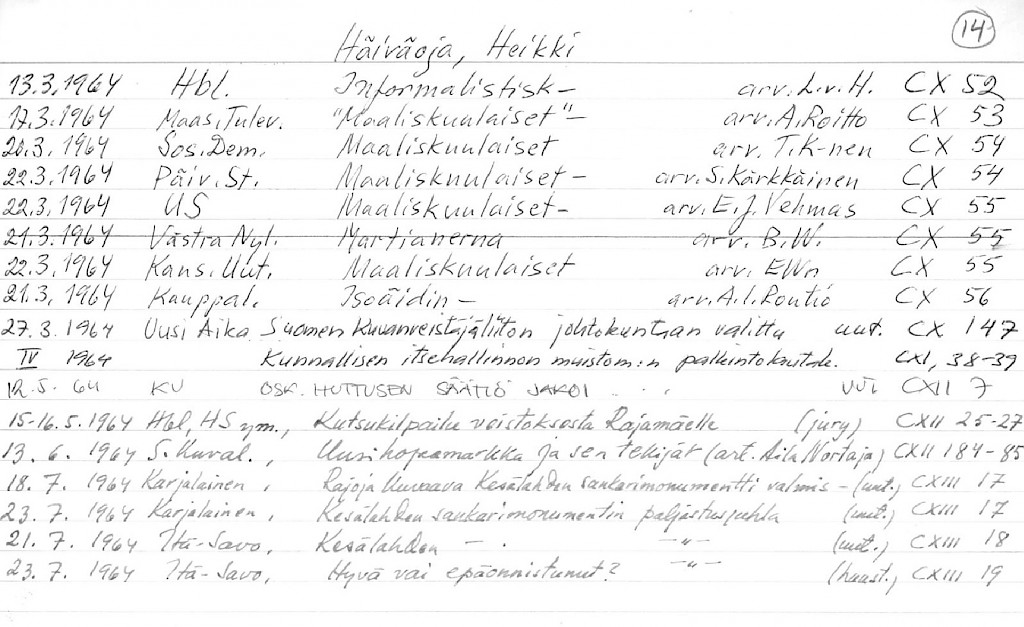 14
Häiväoja, Heikki
13.3.1964 Hbl. Informalistisk- arv. L.v.H. CX 52
17.3.1964 Maas.Tulev. "Maaliskuulaiset"- arv. A. Roitto CX 53
20.3.1964 Sos.Dem. Maaliskuulaiset arv. T.K-nen CX 54
22.3.1964 Päiv.St. Maaliskuulaiset- arv. S. Kärkkäinen CX 54
22.3.1964 US Maaliskuulaiset- arv. E.J. Vehmas CX 55
21.3.1964 Västra Nyl. Martianerna arv. B.W. CX 55
22.3.1964 Kans.Uut. Maaliskuulaiset arv. EWn CX 55
21.3.1964 Kauppal. Isoäidin- arv. A.I. Routio CX 56
27.3.1964 Uusi Aika Suomen Kuvanveistäjäliiton johtokuntaan valittu uut. CX 147
IV 1964 Kunnallisen itsehallinnon muistom:n palkintolautak. CXI, 38-39
12.5.64 KU OSK. HUTTUSEN SÄÄTIÖ JAKOI . . UUT. CXII 7
15-16.5.1964 Hbl, HS ym., Kutsukilpailu veistoksesta Rajamäelle (jury) CXII 25-27
13.6.1964 S.Kuval., Uusi hopeamarkka ja sen tekijät (art. Aila Nortaja) CXII 184-85
18.7.1964 Karjalainen, Rajoja Kesälahden sankarimonumentti valmis - (uut.) CXIII 17
23.7.1964 Karjalainen, Kesälahden sankarimonumentin paljastusjuhla (uut.) CXIII 17
21.7.1964 Itä-Savo, Kesälahden - . -"- (uut.) CXIII 18
23.7.1964 Itä-Savo, Hyvä vai epäonnistunut? -"- (haast.) CXIII 19